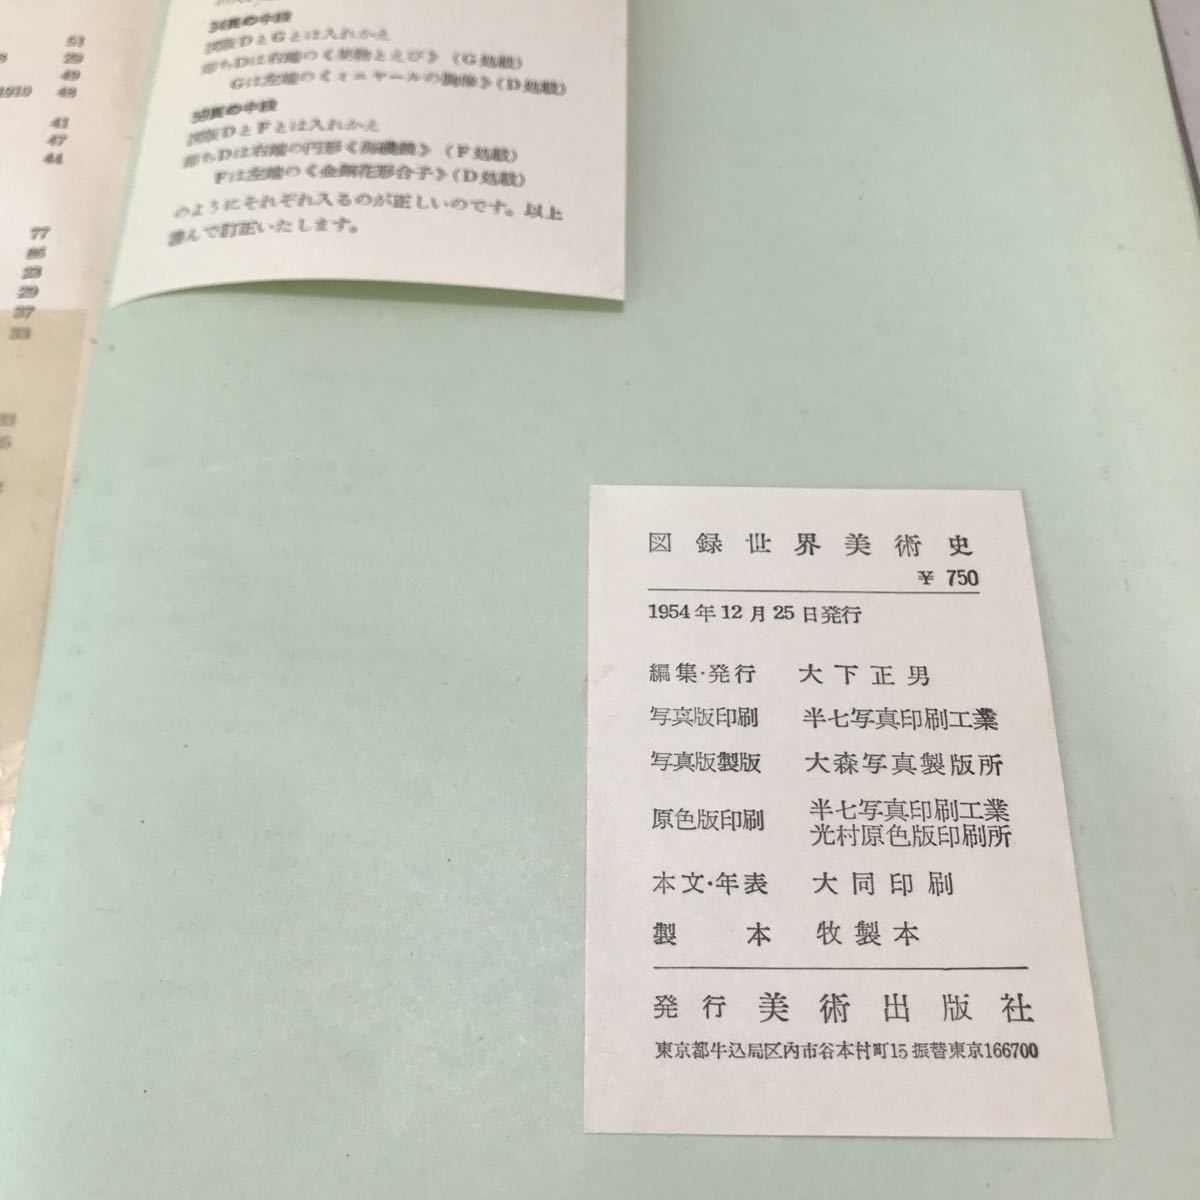 51
29
49
1919 48
41
47
44
77
86
23
29
37
33
図版DとGとは入れかえ
即ちDは右端の《果物とえび》(G処載)
Gは左端の《ミニヤールの胸像》(D処載)
図版DとFとは入れかえ
即ちDは右端の円形《海磯鏡》(F処載)
Fは左端の《金銅花形合子》(D処載)
のようにそれぞれ入るのが正しいのです。以上
謹んで訂正いたします。
図録世界美術史
¥ 750
1954年12月25日発行
編集・発行 大下正男
写真版印刷 半七写真印刷工業
写真版製版 大森写真製版所
原色版印刷 半七写真印刷工業
光村原色版印刷所
本文・年表 大同印刷
製本 牧製本
発行 美術出版社
東京都牛込局区内市谷本村町15 振替東京166700